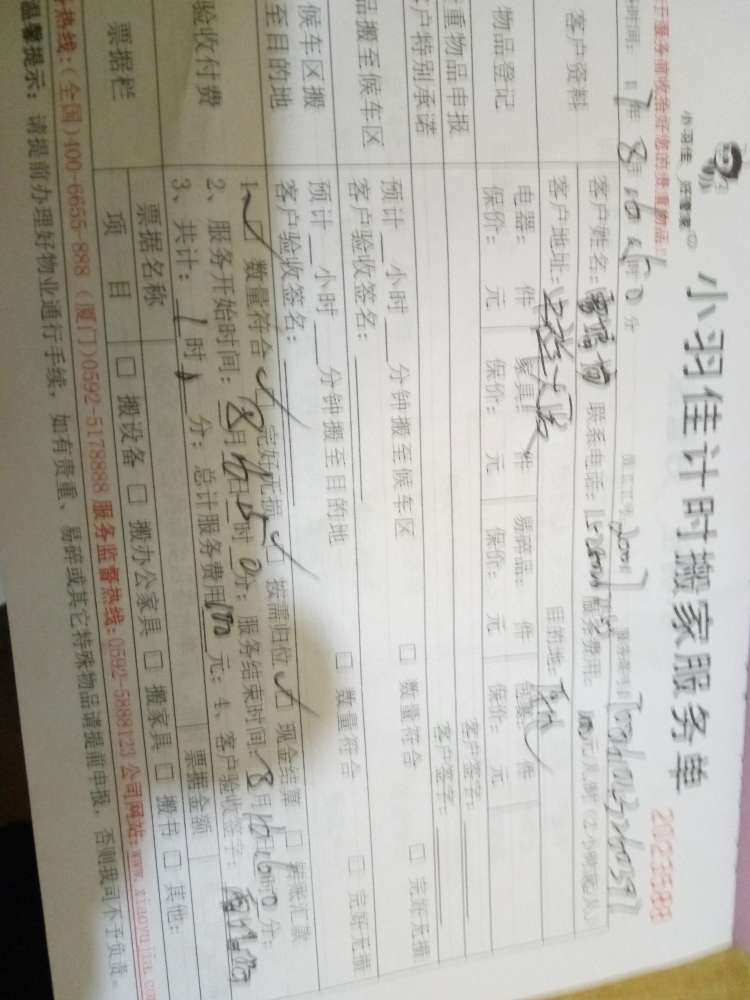 小羽佳 好管家
小羽佳计时搬家服务单
2023588
于服务前收拾好您的贵重物品!
时间: 年 8月 16 日 分
客户资料
客户姓名: 联系电话: 服务费用: 元/小时(2小时起算)
客户地址: 目的地:
物品登记
电器: 件 家具: 件 易碎品: 件 包裹: 件
保价: 元 保价: 元 保价: 元 保价: 元
重物品申报
客户签字:
户特别承诺
客户签字:
品搬至候车区
预计 小时 分钟搬至候车区 □ 数量符合 □ 完好无损
客户验收签名:
候车区搬至目的地
预计 小时 分钟搬至目的地 □ 数量符合 □ 完好无损
客户验收签名:
验收付费
1、□ 数量符合 □ 完好无损 □ 按需归位 □ 现金结算 □ 转账汇款
2、服务开始时间: 8月 16日 5时 0分; 服务结束时间: 8月 16日 6时 0分;
3、共计: 1 时 分; 总计服务费用 元; 4、客户验收签字:
票据栏
票据名称 票据金额
项目 □ 搬设备 □ 搬办公家具 □ 搬家具 □ 搬书 □ 其他:
热线:(全国)400-6655-888 (厦门)0592-5178888 服务监督热线:0592-5888123 公司网站:www.xiaoyujia.com
温馨提示: 请提前办理好物业通行手续, 如有贵重、易碎或其它特殊物品请提前申报, 否则我司不予负责。